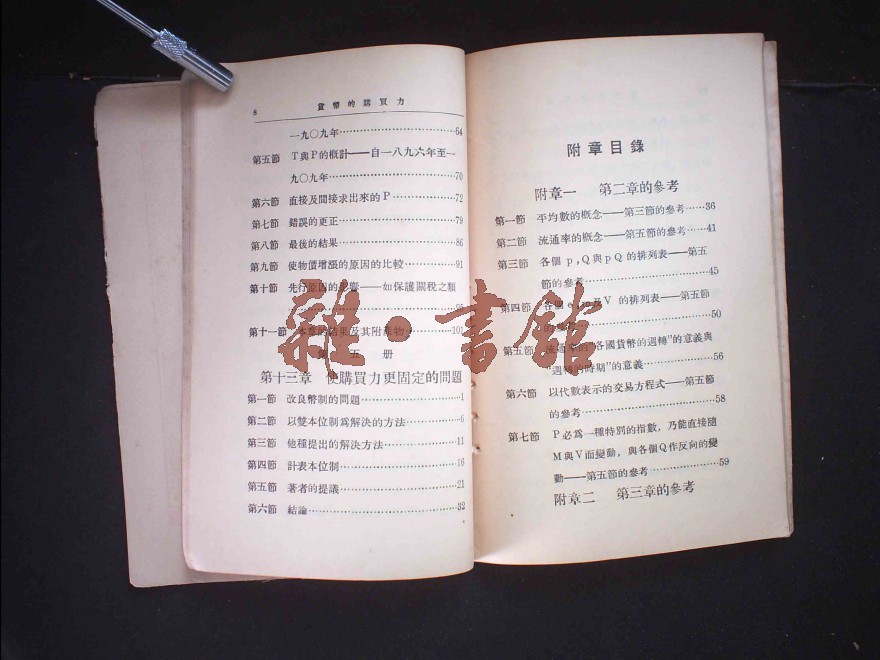 8 貨幣的購買力
一九〇九年……64
第五節 T與P的概計——自一八九六年至一
九〇九年……70
第六節 直接及間接求出來的P……72
第七節 錯誤的更正……79
第八節 最後的結果……86
第九節 使物價增漲的原因的比較……91
第十節 先行原因的影響——如保護關稅之類
第十一節 本章的結果及其附產物
第五册
第十三章 使購買力更固定的問題
第一節 改良幣制的問題……1
第二節 以雙本位制爲解決的方法……6
第三節 他種提出的解決方法……11
第四節 計表本位制……16
第五節 著者的提議……21
第六節 結論……32
附章目錄
附章一 第二章的參考
第一節 平均數的概念——第三節的參考……36
第二節 流通率的概念——第五節的參考……41
第三節 各個p,Q與pQ的排列表——第五
節的參考……45
第四節 各個 及V的排列表——第五節
的參考……50
第五節 流通率的"各國貨幣的週轉"的意義與
"週轉的時期"的意義……56
第六節 以代數表示的交易方程式——第五節
的參考……58
第七節 P必爲一種特別的指數,乃能直接隨
M與V而變動,與各個Q作反向的變
動——第五節的參考……59
附章二 第三章的參考
雜·書館